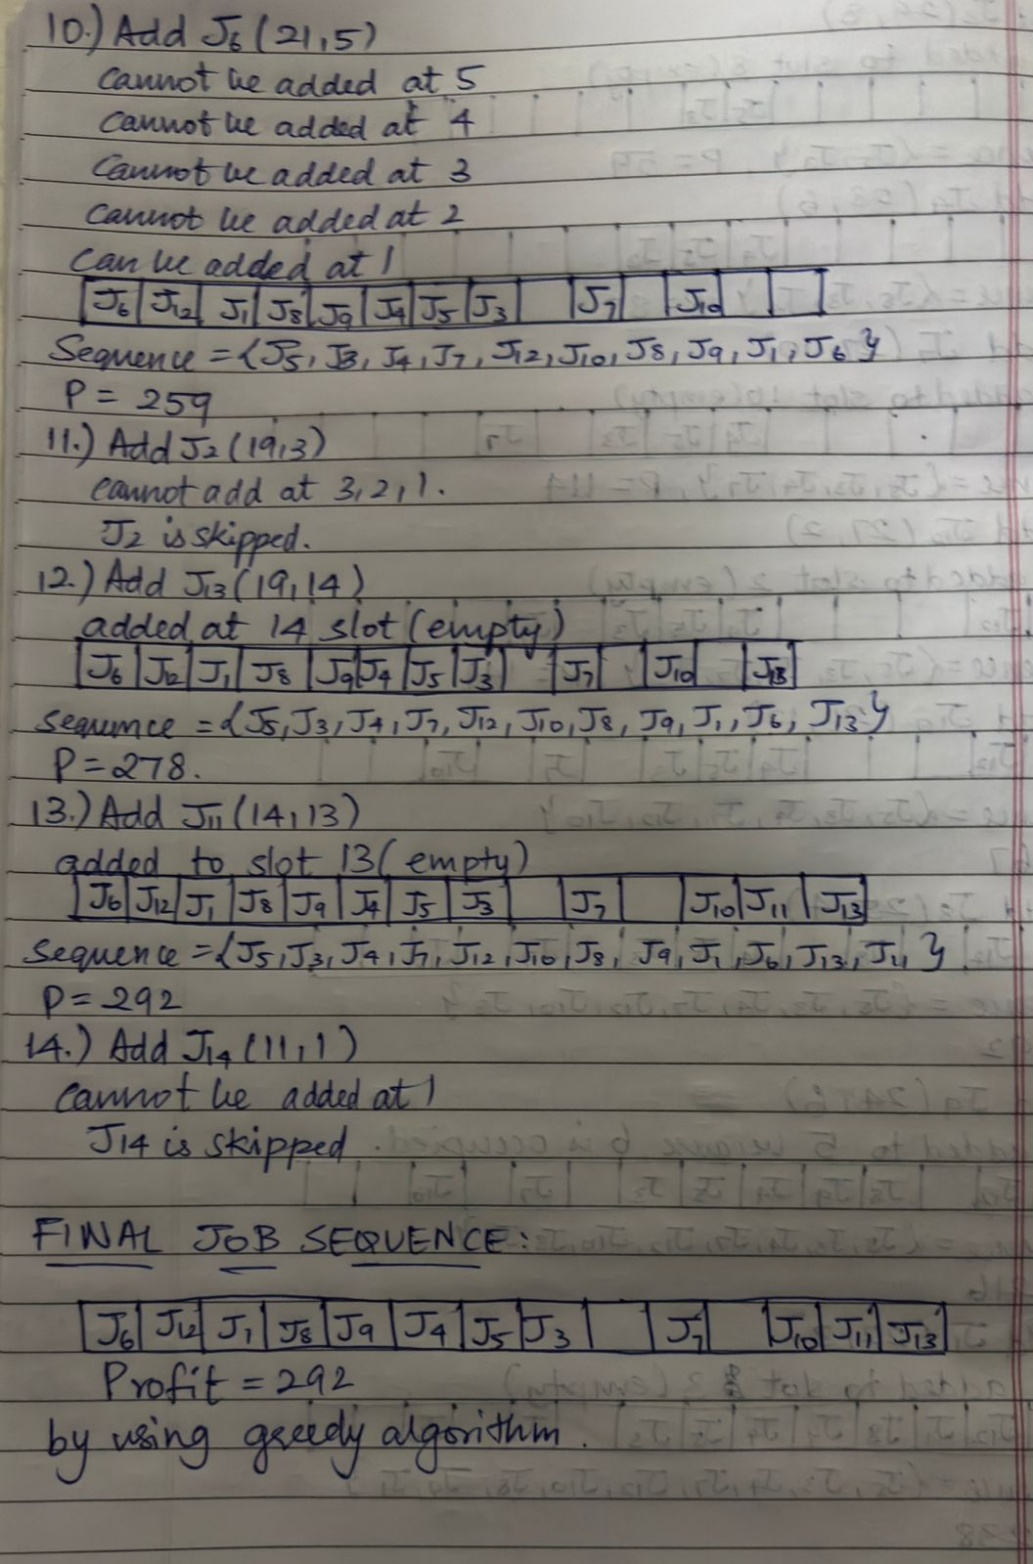 10.) Add J6 (21,5)
cannot be added at 5
cannot be added at 4
cannot be added at 3
cannot be added at 2
can be added at 1
J6 J12 J1 J8 J9 J4 J5 J3 J7 J10
Sequence = {J5, J3, J4, J7, J12, J10, J8, J9, J1, J6}
P = 259
11.) Add J2 (19,3)
cannot add at 3,2,1.
J2 is skipped.
12.) Add J13 (19,14)
added at 14 slot (empty)
J6 J12 J1 J8 J9 J4 J5 J3 J7 J10 J13
sequence = {J5, J3, J4, J7, J12, J10, J8, J9, J1, J6, J13}
P = 278.
13.) Add J11 (14,13)
added to slot 13 (empty)
J6 J12 J1 J8 J9 J4 J5 J3 J7 J10 J11 J13
sequence = {J5, J3, J4, J7, J12, J10, J8, J9, J1, J6, J13, J11}
P = 292
14.) Add J14 (11,1)
cannot be added at 1
J14 is skipped.
FINAL JOB SEQUENCE:
J6 J12 J1 J8 J9 J4 J5 J3 J7 J10 J11 J13
Profit = 292
by using greedy algorithm.